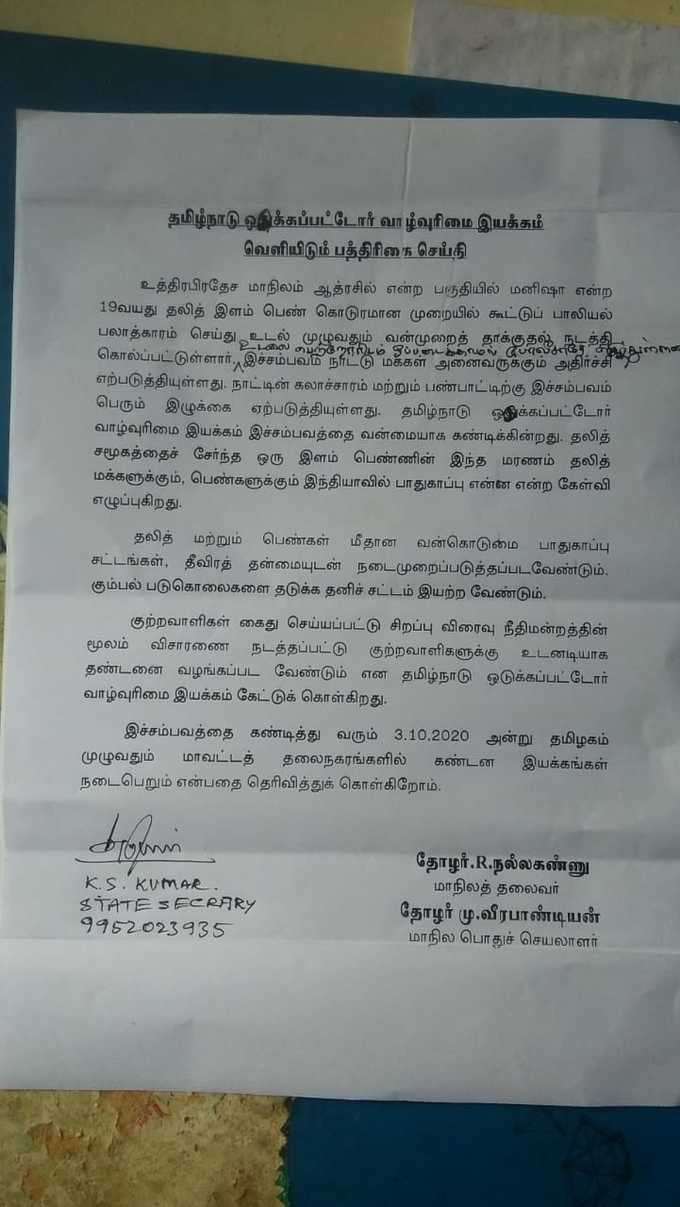 தமிழ்நாடு ஒடுக்கப்பட்டோர் வாழ்வுரிமை இயக்கம்
வெளியிடும் பத்திரிகை செய்தி
உத்திரபிரதேச மாநிலம் ஆத்ரசில் என்ற பகுதியில் மனிஷா என்ற
19வயது தலித் இளம் பெண் கொடுரமான முறையில் கூட்டுப் பாலியல்
பலாத்காரம் செய்து உடல் முழுவதும் வன்முறைத் தாக்குதல் நடத்தி
உடலை பெற்றோரிடம் ஒப்படைக்காமல் போலீசாரே
கொல்ப்பட்டுள்ளார். இச்சம்பவம் நாட்டு மக்கள் அனைவருக்கும் அதிர்ச்சி
ஏற்படுத்தியுள்ளது. நாட்டின் கலாச்சாரம் மற்றும் பண்பாட்டிற்கு இச்சம்பவம்
பெரும் இழுக்கை ஏற்படுத்தியுள்ளது. தமிழ்நாடு ஒடுக்கப்பட்டோர்
வாழ்வுரிமை இயக்கம் இச்சம்பவத்தை வன்மையாக கண்டிக்கின்றது. தலித்
சமூகத்தைச் சேர்ந்த ஒரு இளம் பெண்ணின் இந்த மரணம் தலித்
மக்களுக்கும், பெண்களுக்கும் இந்தியாவில் பாதுகாப்பு என்ன என்ற கேள்வி
எழுப்புகிறது.
தலித் மற்றும் பெண்கள் மீதான வன்கொடுமை பாதுகாப்பு
சட்டங்கள், தீவிரத் தன்மையுடன் நடைமுறைப்படுத்தப்படவேண்டும்.
கும்பல் படுகொலைகளை தடுக்க தனிச் சட்டம் இயற்ற வேண்டும்.
குற்றவாளிகள் கைது செய்யப்பட்டு சிறப்பு விரைவு நீதிமன்றத்தின்
மூலம் விசாரணை நடத்தப்பட்டு குற்றவாளிகளுக்கு உடனடியாக
தண்டனை வழங்கப்பட வேண்டும் என தமிழ்நாடு ஒடுக்கப்பட்டோர்
வாழ்வுரிமை இயக்கம் கேட்டுக் கொள்கிறது.
இச்சம்பவத்தை கண்டித்து வரும் 3.10.2020 அன்று தமிழகம்
முழுவதும் மாவட்டத் தலைநகரங்களில் கண்டன இயக்கங்கள்
நடைபெறும் என்பதை தெரிவித்துக் கொள்கிறோம்.
தோழர்.R.நல்லகண்ணு
மாநிலத் தலைவர்
தோழர் மு.வீரபாண்டியன்
மாநில பொதுச் செயலாளர்
K.S. KUMAR.
STATE SECRARY
9952023935